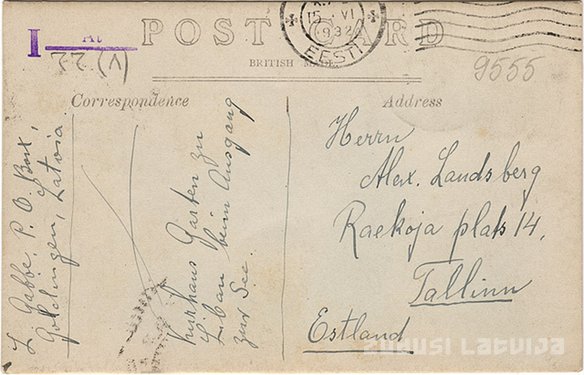 I At
POST CARD
(V)
BRITISH MADE
15 VI
932
EESTI
9555
Correspondence
Address
L. Gabbe, P. O. Box,
Goldingen, Latvia.
Kurhaus Garten zu
Libau beim Ausgang
zur See.
Herrn
Alex. Landsberg
Raekoja plats 14,
Tallinn
Estland
ZUDUSI LATVIJA